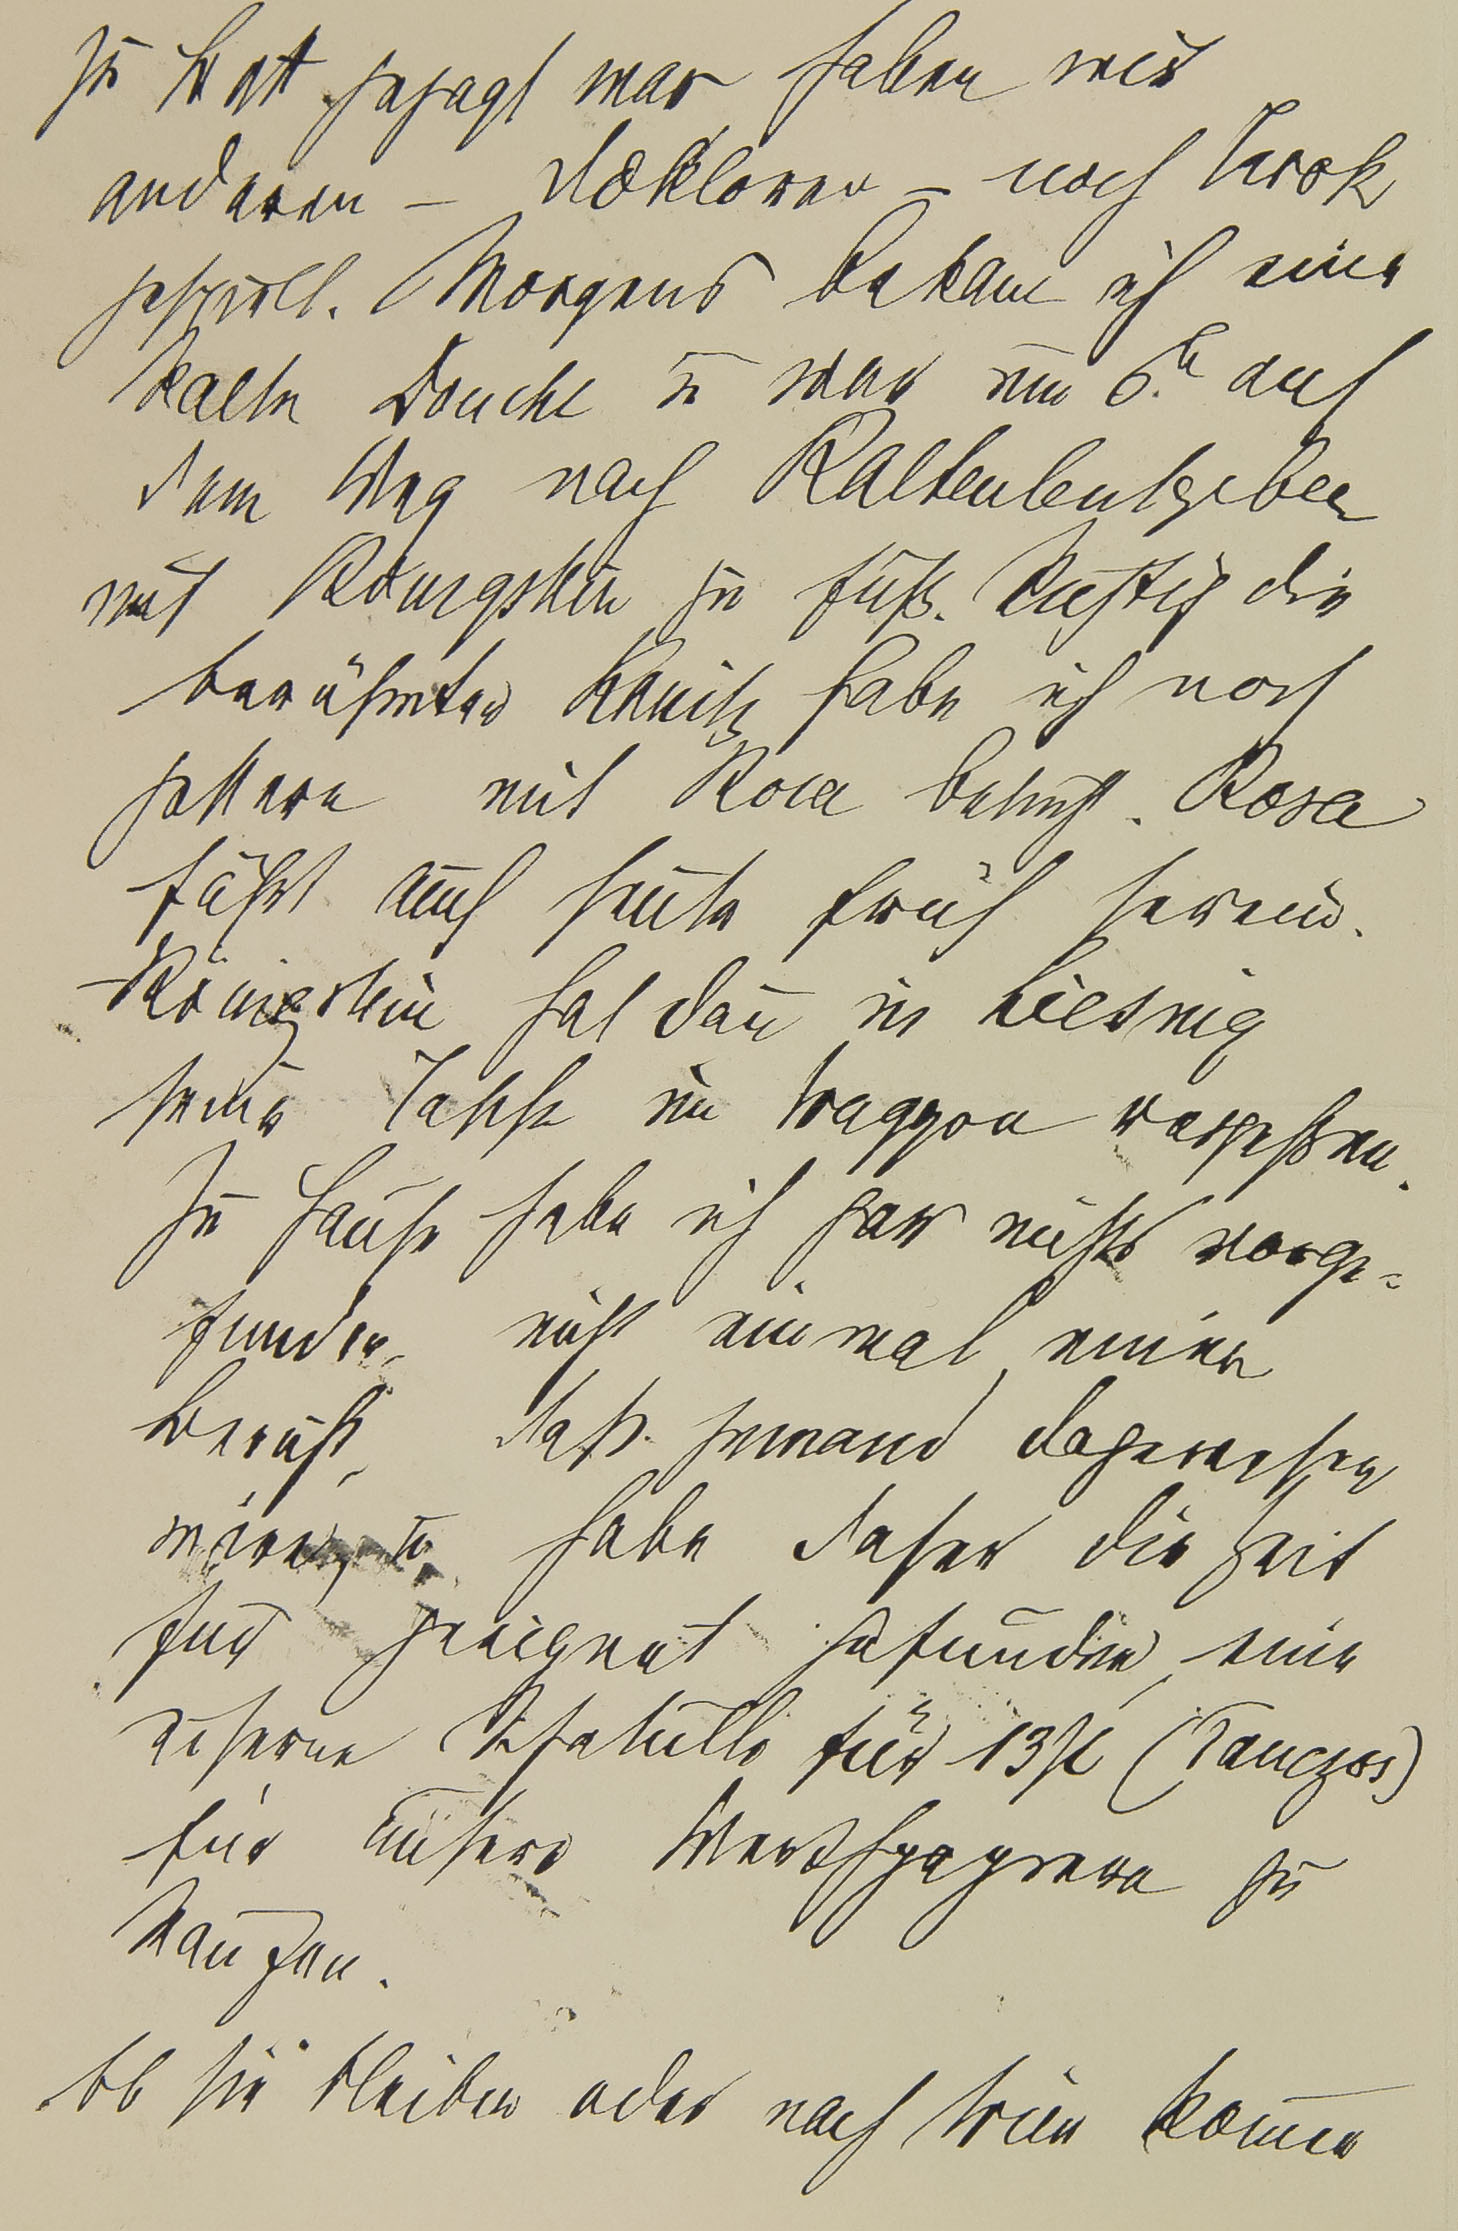 zu Bett gejagt war haben wir
anderen – Doktoren – noch Tarok
gespielt. Morgens bekam ich eine
kalte Douche u war um 6.h auf
dem Weg nach Kaltenleutgeben
mit Königstein zu Fuß. Lustig die
berühmte habe ich noch
gestern mit Rosa besucht. Rosa
fährt auch heute früh herein.
Königstein hat dañ in Liesing
seine Tasche im Waggon vergeßen.
Zu Hause habe ich gar nichts vorge=
funden, nicht einmal einen
Bericht, daß jemand dagewesen
wäre, u habe daher die Zeit
für geeignet gefunden, eine
eiserne Chatulle für 13 fl (Tanczos)
für unsere Werthpapiere zu
kaufen.
Ob sie bleiben oder nach Wien kom̄en